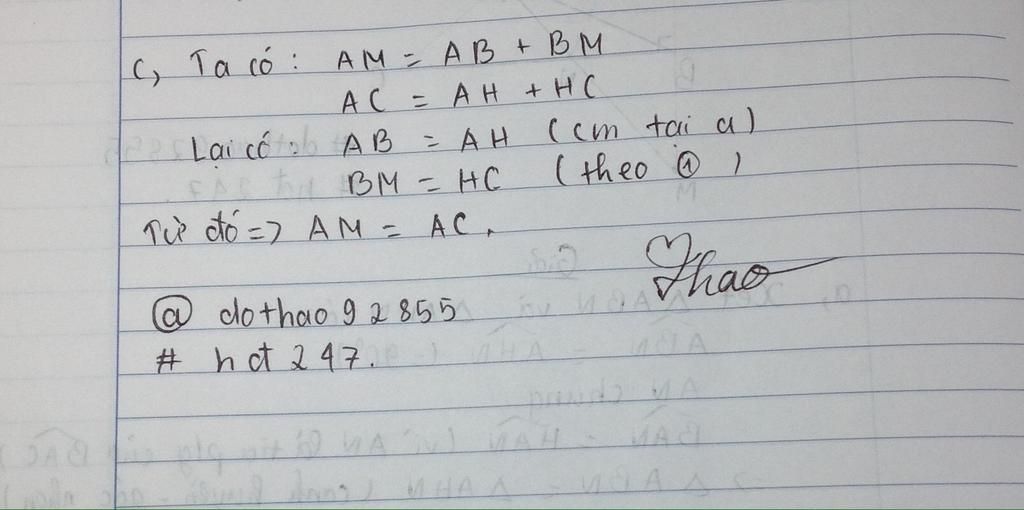 c, Ta có: AM = AB + BM
AC = AH + HC
Lại có: AB = AH (cm tại a)
BM = HC (theo @)
Từ đó => AM = AC.
Thao
@ dothao92855
# hđt 247.